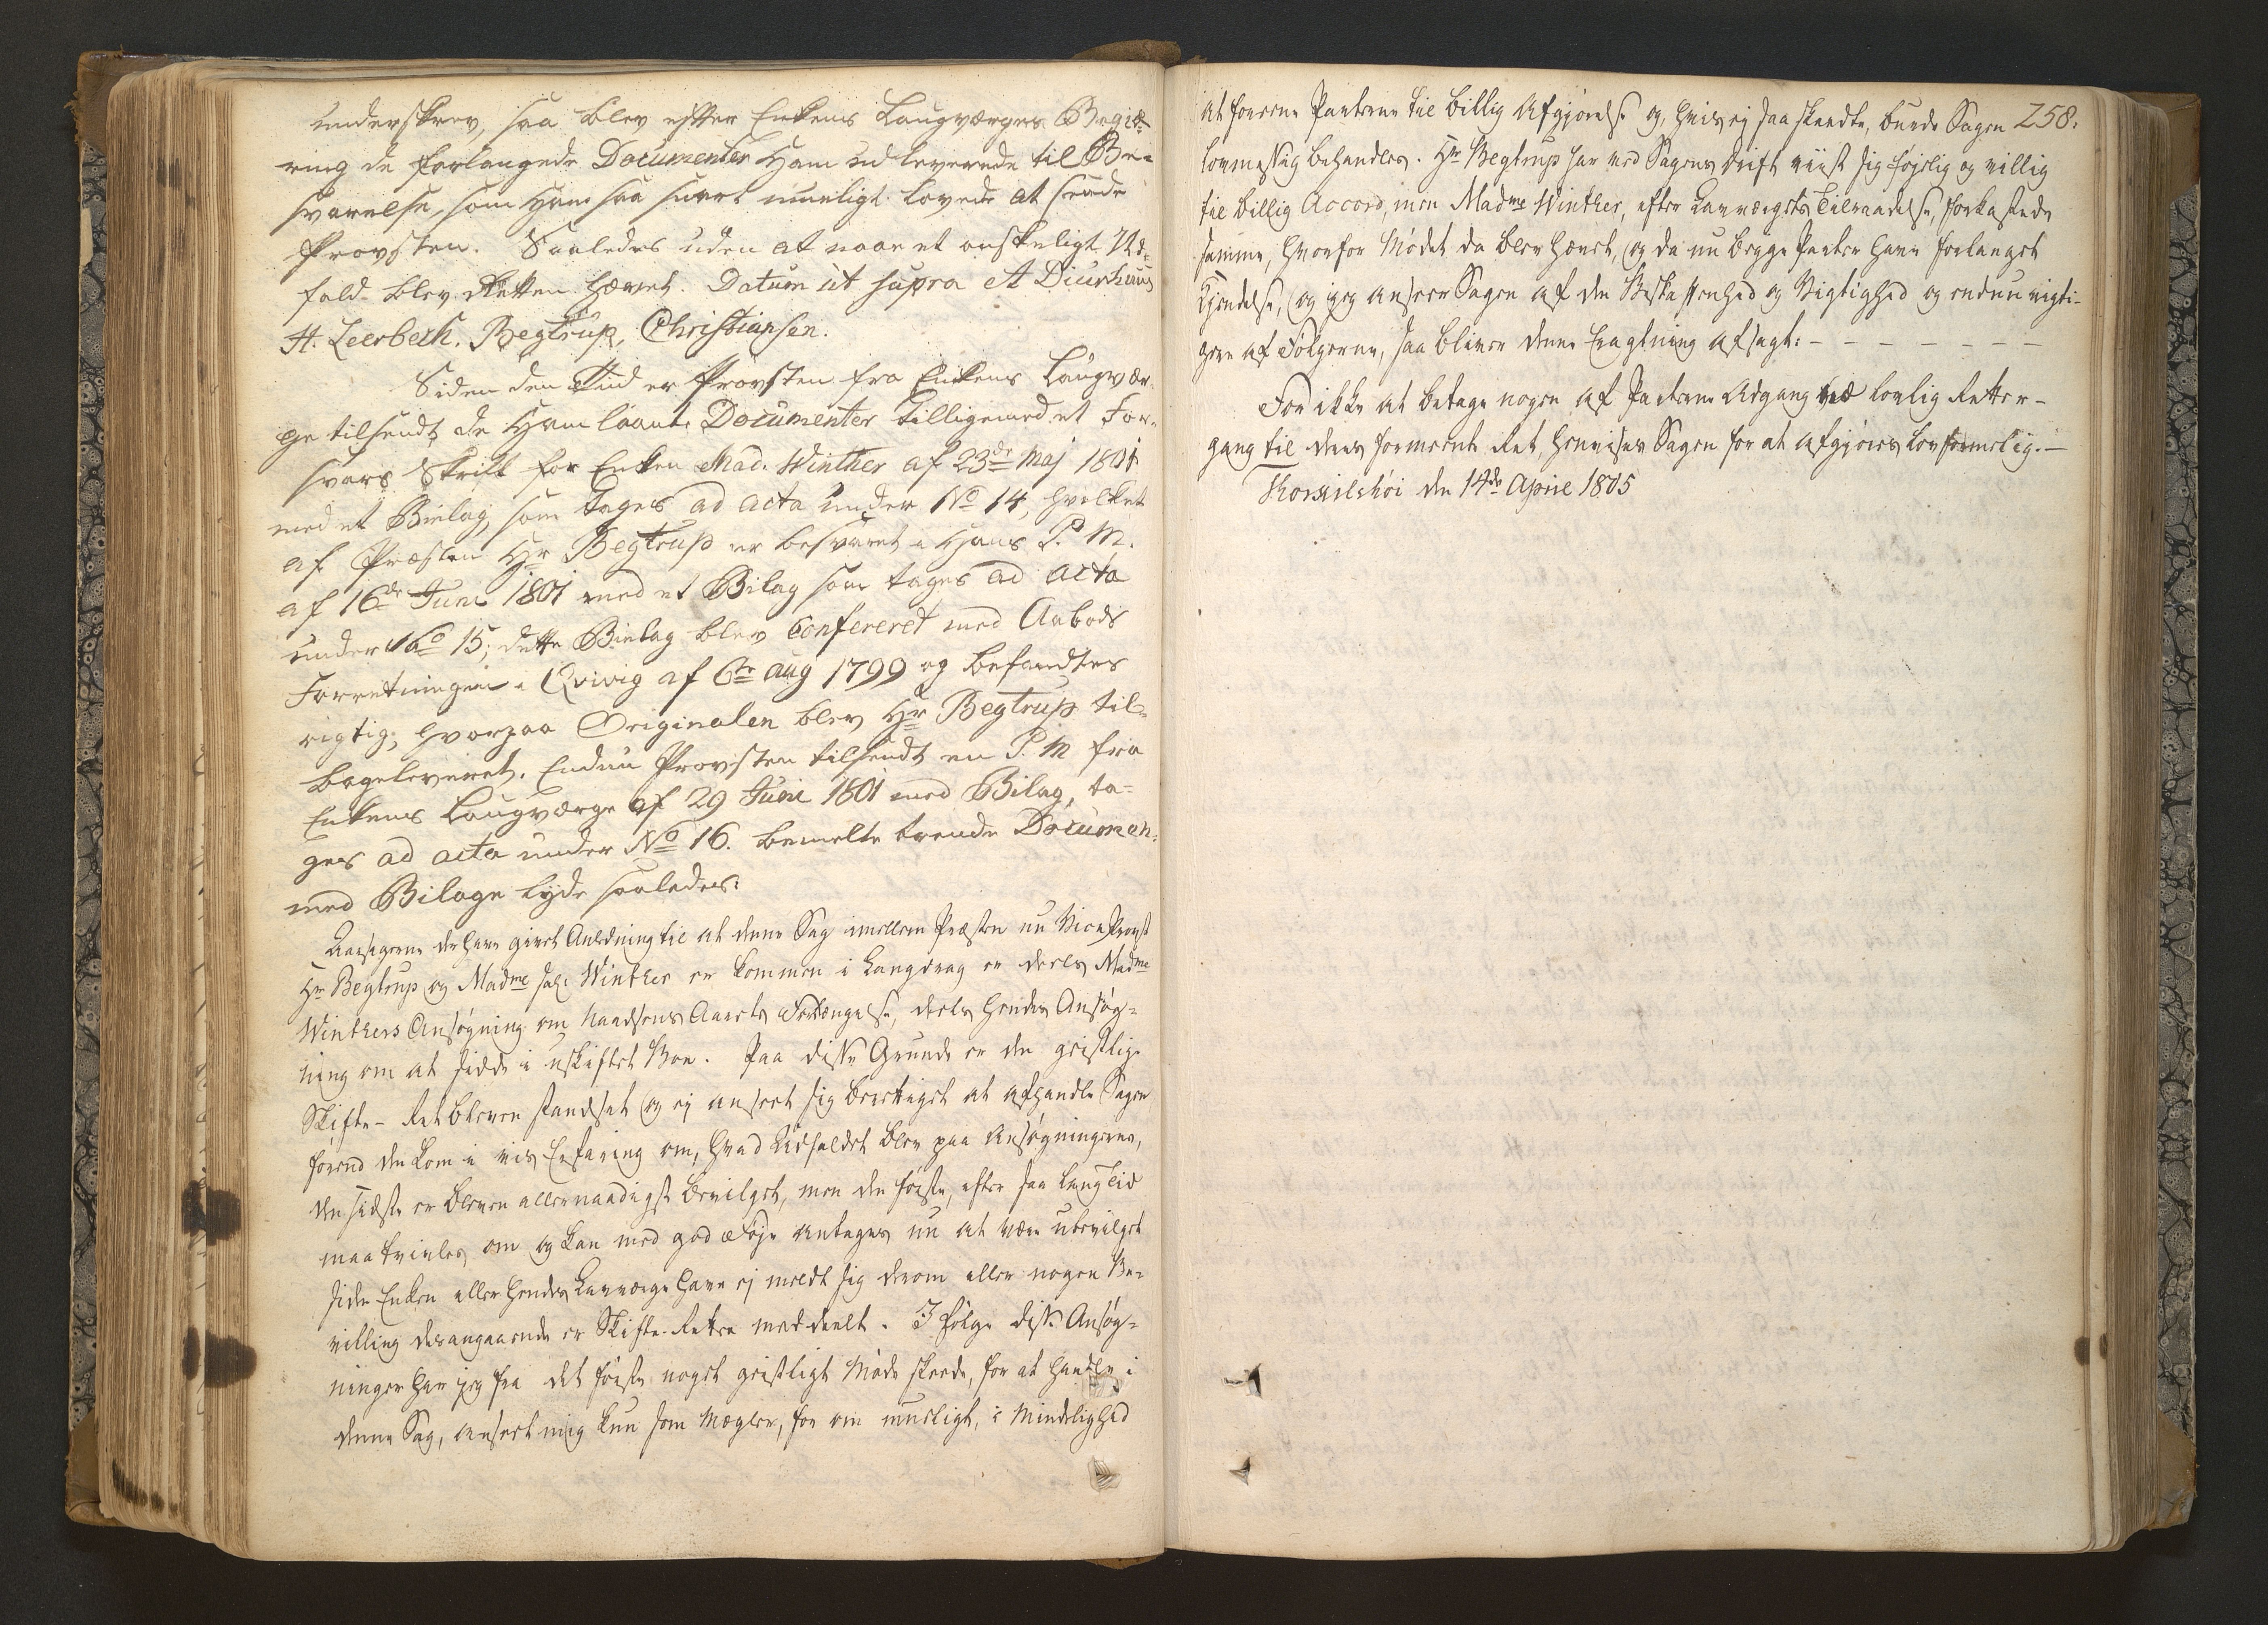 underskrev, saa blev efter Enkens Laugværges Begiæ-
ring de forlangede Documenter Ham udleverede til Be-
svarelse, som Han saa snart mueligt lovede at sende
Provsten. Saaledes uden at naae et ønskeligt Ud-
fald blev Retten hævet. Datum ut supra A Diurhuus
H. Leerbech. Begtrup, Christiansen.
Siden den Tiid er Provsten fra Enkens Laugvær-
ge tilsendt de Ham laante Documenter tilligemed et For-
svars Skrift for Enken Mad. Winther af 23de Maj 1801
med et Bielag, som tages ad acta under No 14, hvilket
af Præsten Hr Begtrup er besvaret i Hans P. M.
af 16de Juni 1801 med et Bilag som tages ad acta
under No 15; dette Bielag blev Confereret med Aabods
Forretningen i Qvivig af 6te Aug 1799 og befandtes
rigtig; hvorpaa Originalen blev Hr Begtrup til-
bageleveret. Endnu Provsten tilsendt en P. M fra
Enkens Laugværge af 29 Juni 1801 med Bilag, ta-
ges ad acta under No 16. bemelte trende Documen-
med Bilage lyde saaledes:
Aarsagerne der have givet Anledning til at denne Sag imellem Præsten nu Vice Provst
Hr Begtrup og Madme sal: Winther er kommen i Langdrag er deels Madme
Winthers Ansøgning om Naadsens Aarets Forlængelse, deels hendes Ansøg-
ning om at sidde i uskiftet Boe. Paa disse Grunde er den geistlige
Skifte-Ret bleven standset og ej anseet sig berettiget at afhandle Sagen
førend den kom i vis Erfaring om, hvad Udfaldet blev paa Ansøgningerne,
den sidste er bleven allernaadigst bevilget, men den første, efter saa lang Tid
maa tvivles om og kan med god Føje antages nu at være ubevilget
siden Enken eller hendes Lauværge have ej meldt sig derom eller nogen Be-
villing desangaaende er Skifte-Retten meddeelt. I følge disse Ansøg-
ninger har jeg fra det første noget geistligt Møde skeede, for at handle i
denne Sag, anseet mig kun som Mægler, for om mueligt, i Mindelighed
258.
at forene Parterne til billig Afgjørelse og, hvis ej saa skeedte, burde Sagen
lovmessig behandles. Hr Begtrup har ved Sagens Drift viist sig føjelig og villig
til billig Accord, men Madme Winther, efter Lauværgets Tilraadelse, forkastede
samme, hvorfor Mødet da blev hævet, og da nu begge Parter have forlanget
Kjendelse, og jeg anseer Sagen af den Beskaffenhed og Vigtighed og endnu vigti-
gere af Følgerne, saa bliver denne Eragtning afsagt: - - - - - - -
For ikke at betage nogen af Parterne Adgang ved lovlig Retter-
gang til deres formeente Ret, henvises Sagen for at afgjøres lovformelig. —
Thorsilshøi den 14de April 1805